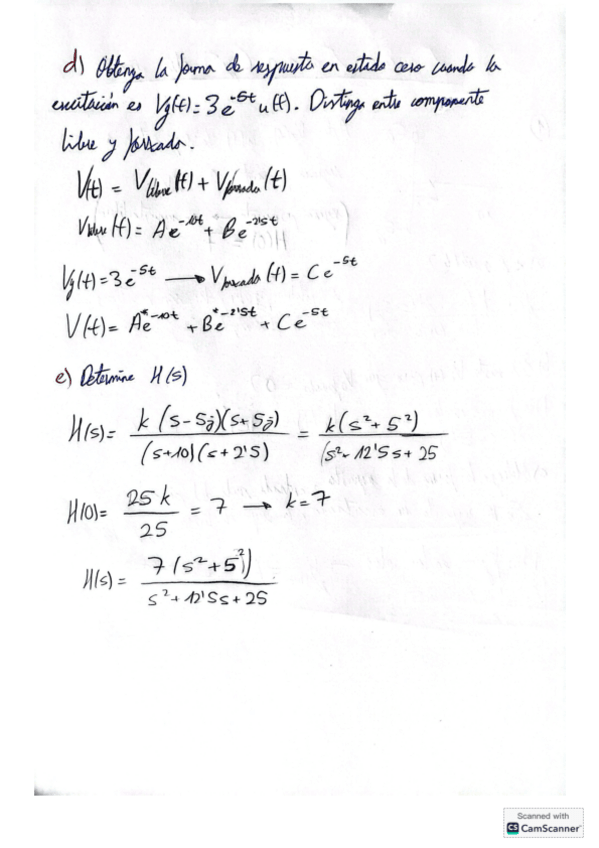 d) Obtenga la forma de respuesta en estado cero cuando la
excitación es Vg(t)=3e^-5t u(t). Distinga entre componente
libre y forzado.
V(t) = Vlibre(t) + Vforzada(t)
Vlibre(t) = Ae^-10t + Be^-2'5t
Vg(t)=3e^-5t → Vforzado(t) = Ce^-5t
V(t) = A*e^-10t + B*e^-2'5t + Ce^-5t
e) Determine H(s)
H(s) = k (s-5j)(s+5j) / (s+10)(s+2'5) = k(s²+5²) / (s²+12'5s+25
H(0) = 25k / 25 = 7 → k=7
H(s) = 7(s²+5²) / s²+12'5s+25
Scanned with
CS CamScanner